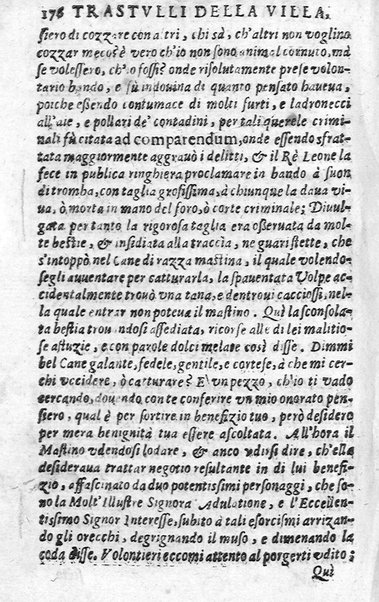 176 TRASTVLLI DELLA VILLA,
siero di cozzare con a tri, chi sà, ch'altri non voglino
cozzar meco? è vero ch'io non sono animal cornuto, mà
se volessero, ch'o fossi? onde risolutamente prese volon-
tario bando, e fù indouina di quanto pensato haueua,
poiche essendo contumace di molti furti, e ladronecci
all'aie, e pollari de' contadini, per tali querele crimi-
nali fù citata ad comparendum, onde essendo sfrat-
tata maggiormente aggrauò i delitti, & il Rè Leone la
fece in publica ringhiera proclamare in bando à suon
di tromba, con taglia grossissima, à chiunque la daua vi-
ua, ò morta in mano del foro, ò corte criminale; Diuul-
gata per tanto la rigorosa taglia era osseruata da mol-
te bestie, & insidiata alla traccia, ne guari stette, che
s'intoppò nel Cane di razza mastina, il quale volendo-
segli auuentare per catturarla, la spauentata Volpe ac-
cidentalmente trouò vna tana, e dentroui cacciossi, nel-
la quale entrar non poteua il mastino. Quì la sconsola-
ta bestia trouandosi assediata, ricorse alle di lei malitio-
se astuzie, e con parole dolci melate così disse. Dimmi
bel Cane galante, fedele, gentile, e cortese, à che mi cer-
chi vccidere, ò carturare? E vn pezzo, ch'io ti vado
cercando, douendo conte conferire vn mio onorato pen-
siero, qual è per sortire in benefizio tuo, però desidero
per mera benignità tua essere ascoltata. All'hora il
Mastino vdendosi lodare, & anco vdirsi dire, ch'ella
desideraua trattar negotio resultante in di lui benefi-
zio, affascinato da duo potentissimi personaggi, che so-
no la Molt'Illustre Signora Adulatione, e l'Eccellen-
tissimo Signor Interesse, subito à tali esorcismi arrizan-
do gli orecchi, degrignando il muso, e dimenando la
coda disse. Volontieri eccomi attento al porgerti vdito;
Quì